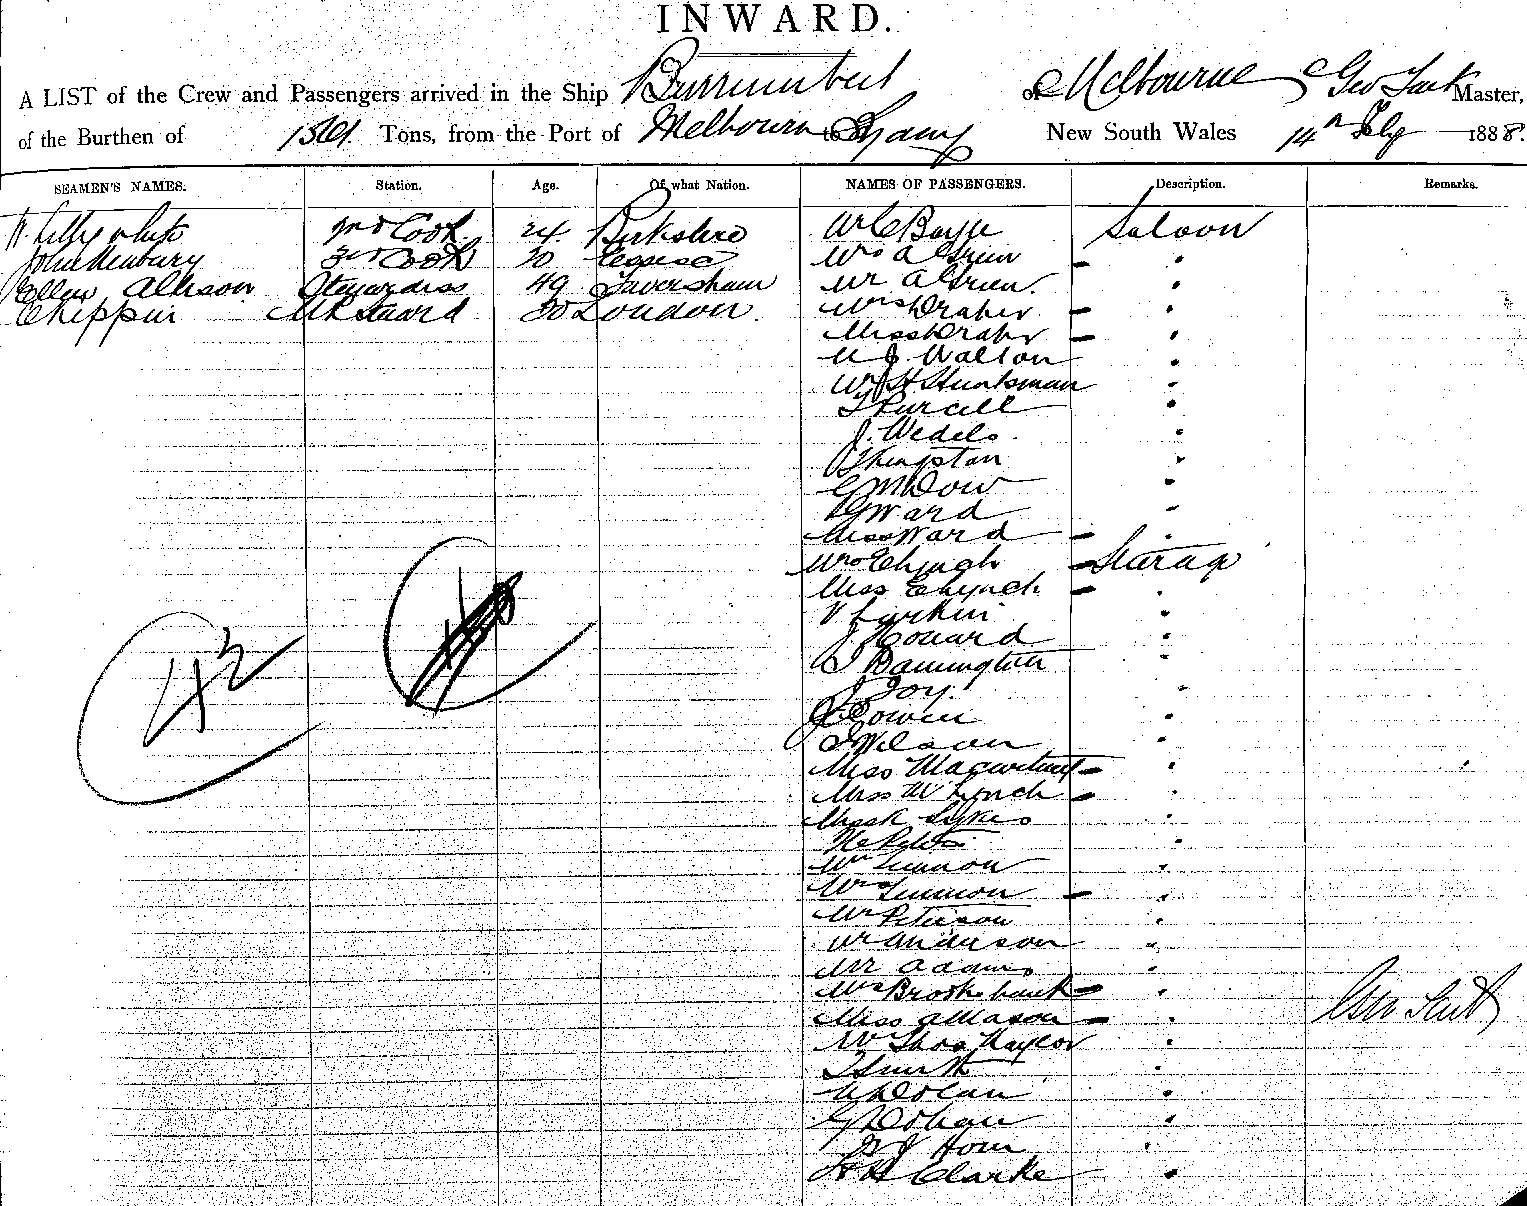 INWARD.
A LIST of the Crew and Passengers arrived in the Ship Burrumbeet of Melbourne Geo Tait Master,
of the Burthen of Tons, from the Port of Melbourne to Sydney New South Wales 14th July 1888.
SEAMEN'S NAMES. Station. Age. Of what Nation. NAMES OF PASSENGERS. Description. Remarks.
W. Lillywhite 2nd Cook 24 Berkshire Mr C Boyle Saloon
John Newbury 3rd Cook 20 Essex Mrs A Green - "
Ellen Allison Stewardess 49 Faversham Mr A Green. "
Chipper London. Mrs Draper - "
Miss Draper - "
J. Walton "
H Huntsman "
Purcell "
J. Wedels. "
Kingston "
G M Dow "
G Ward "
Miss Ward - "
Mrs E Lynch - Steerage
Miss E Lynch - "
Larkin "
J Howard "
Bannington "
J Foy. "
J Cowen "
J Wilson "
Miss - "
Miss M Lynch - "
Miss K Sykes "
"
Mr Lennon "
Mrs Lennon - "
Mr Peterson "
Mr Anderson "
Mr Adams "
Mrs Brooksbank - "
Miss A Mason - " Geo Tait
Mr Thos Naylor "
T Smith "
Dolan "
G Dohan "
J Horn "
H H Clarke "
42